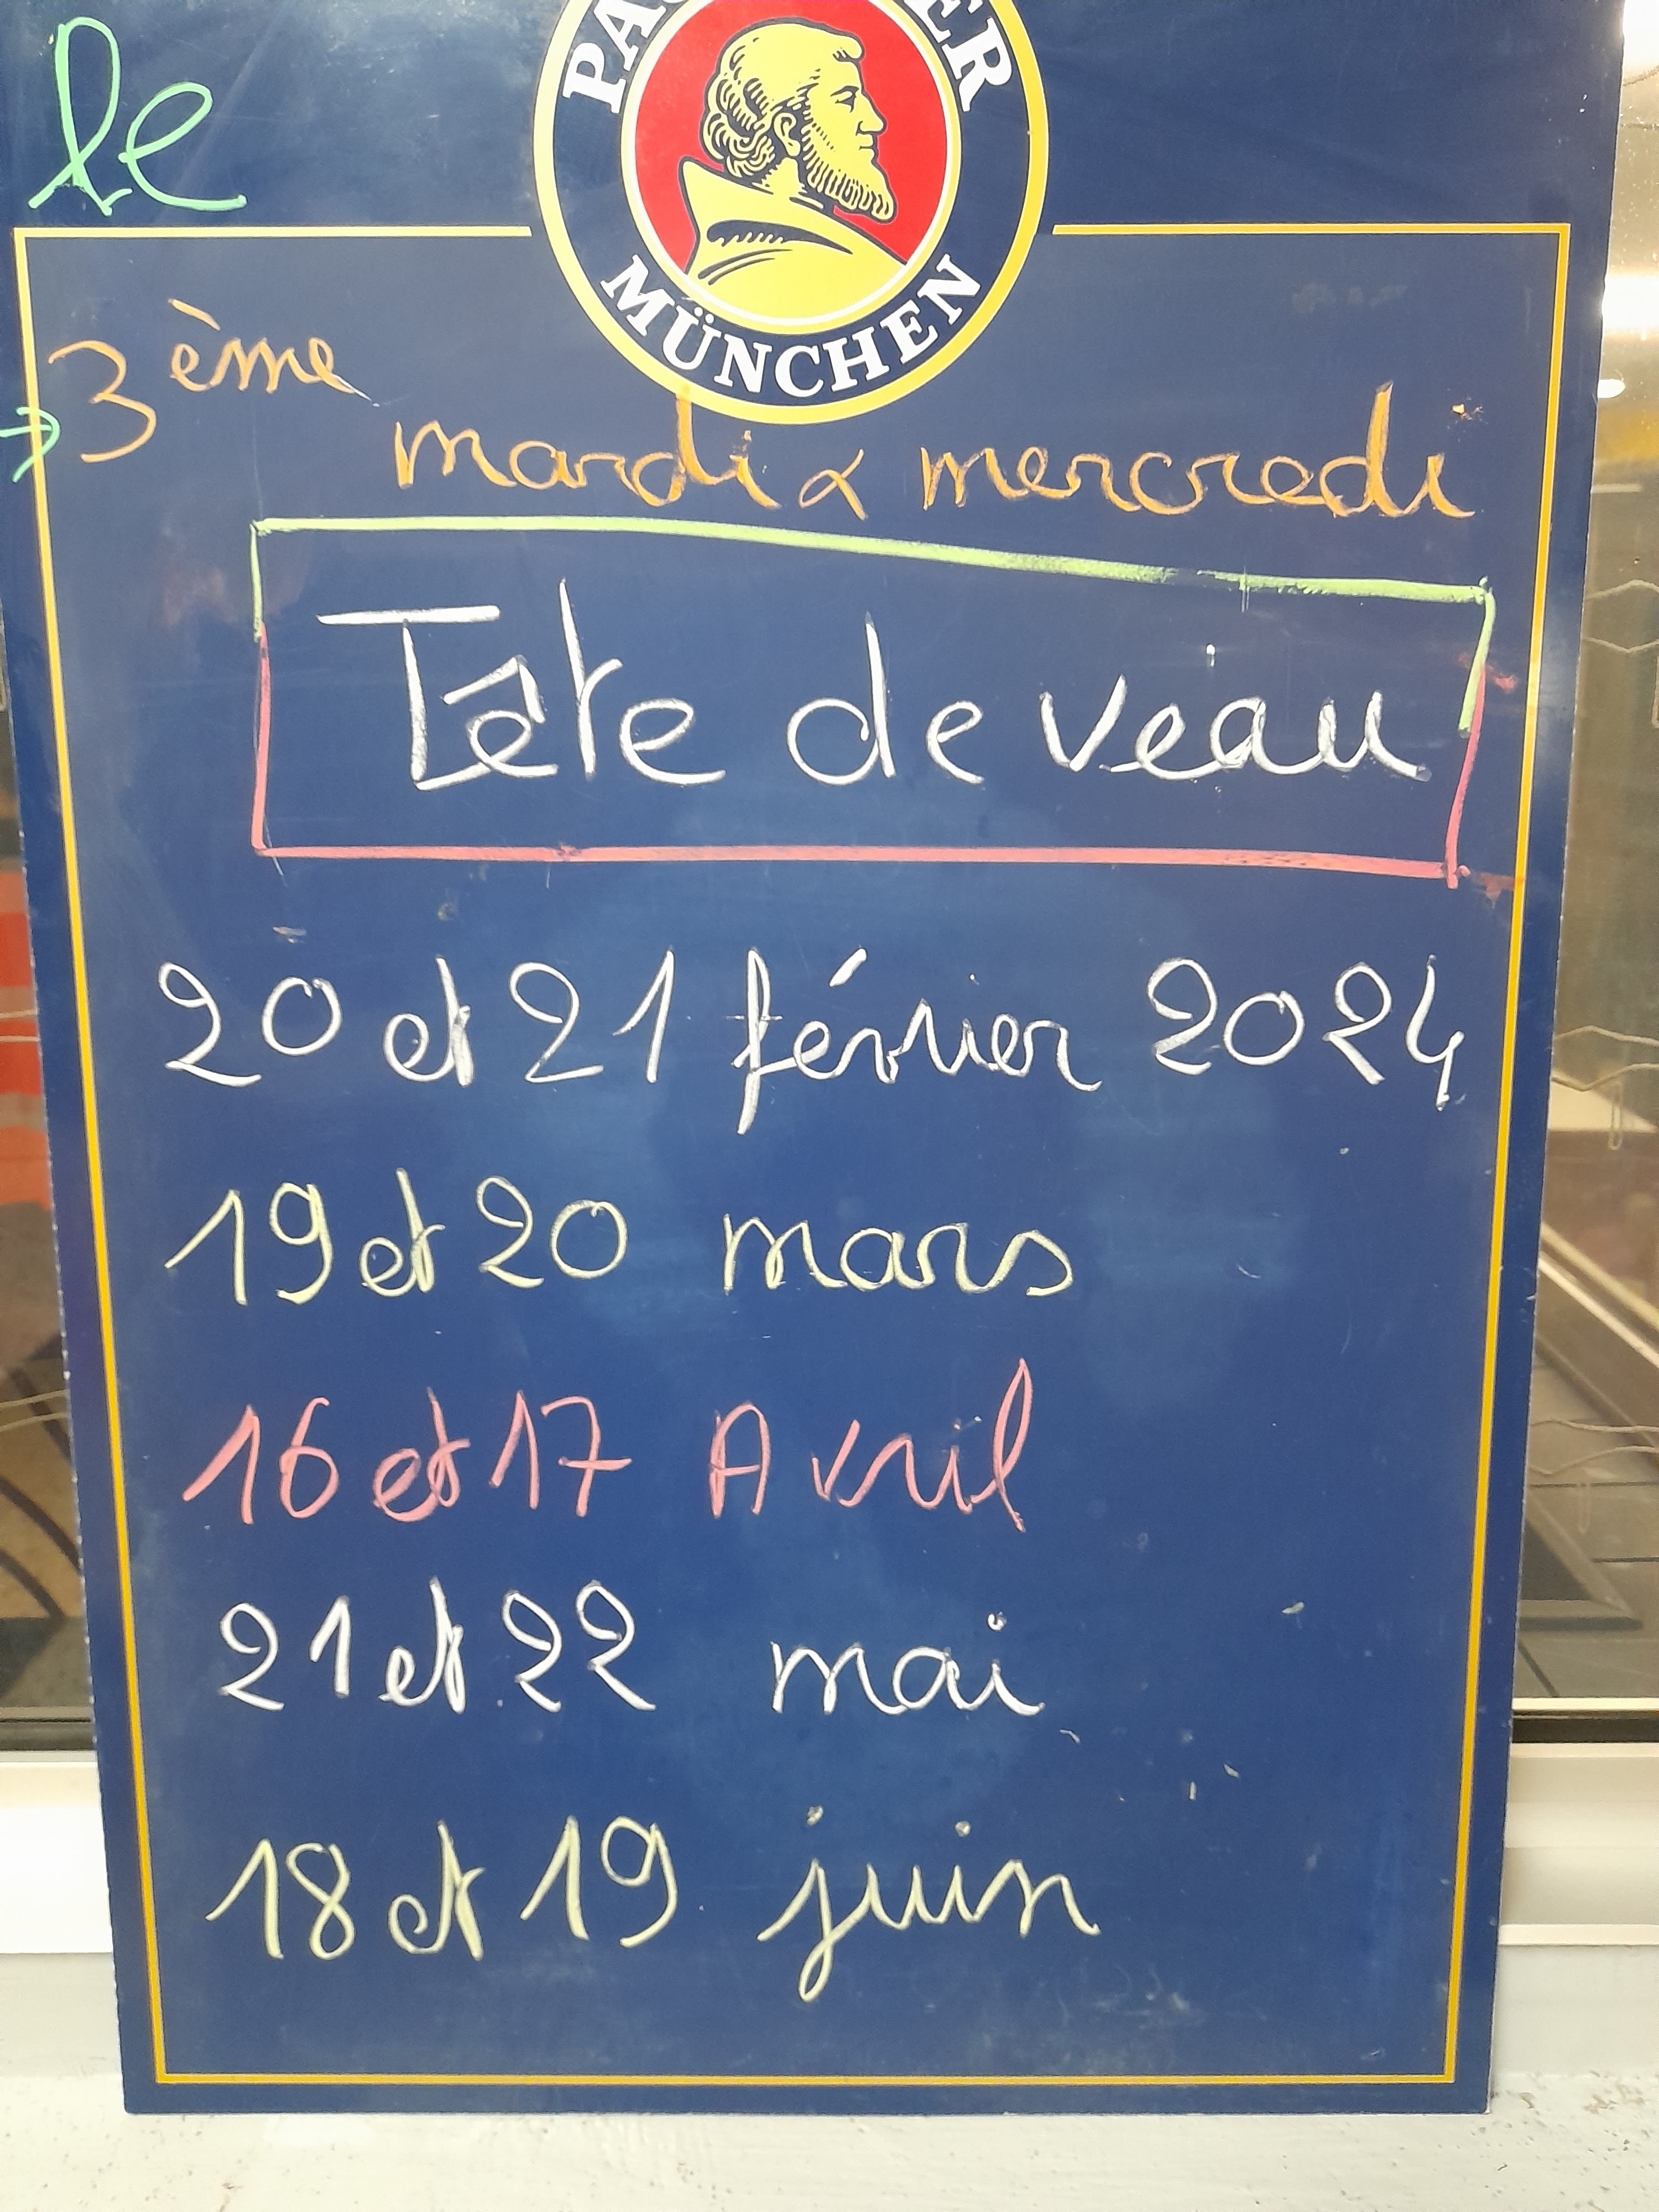 le
MÜNCHEN
3ème
mardi & mercredi
Tête de veau
20 et 21 février 2024
19 et 20 mars
16 et 17 Avril
21 et 22 mai
18 et 19 juin